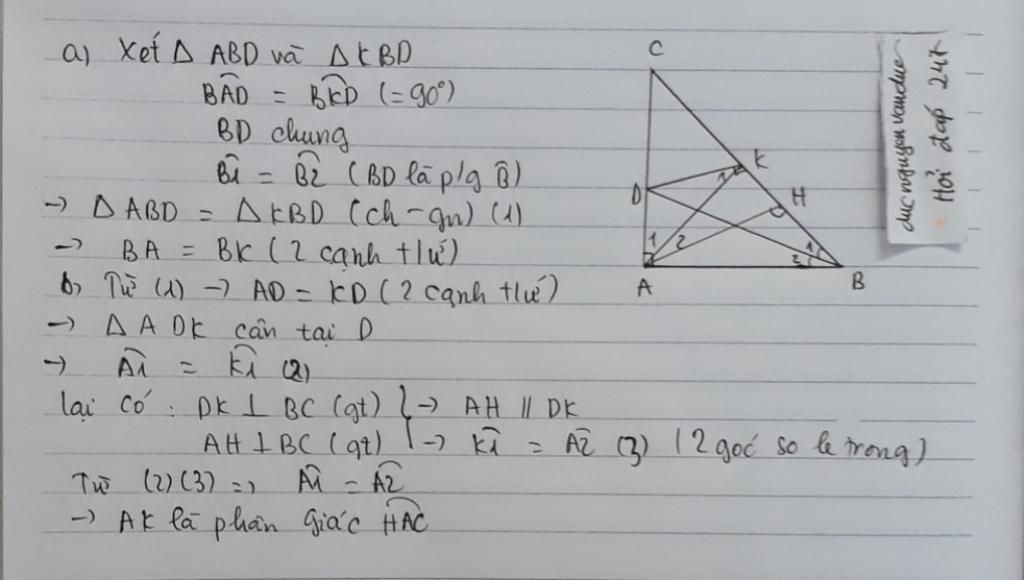 a, Xét Δ ABD và Δ KBD
BÂD = BK̂D (= 90°)
BD chung
B̂1 = B̂2 (BD là p/g B̂)
→ Δ ABD = Δ KBD (ch - gn) (1)
→ BA = BK (2 cạnh t/ứ)
b, Từ (1) → AD = KD (2 cạnh t/ứ)
→ Δ ADK cân tại D
→ Â1 = K̂1 (2)
lại có: DK ⊥ BC (gt) } → AH // DK
AH ⊥ BC (gt) → K̂1 = Â2 (3) (2 góc so le trong)
Từ (2) (3) => Â1 = Â2
→ AK là phân giác HÂC
C
K
1
D
H
1 2
1
2
A
B
duc nguyen van duc
• Hỏi đáp 24h